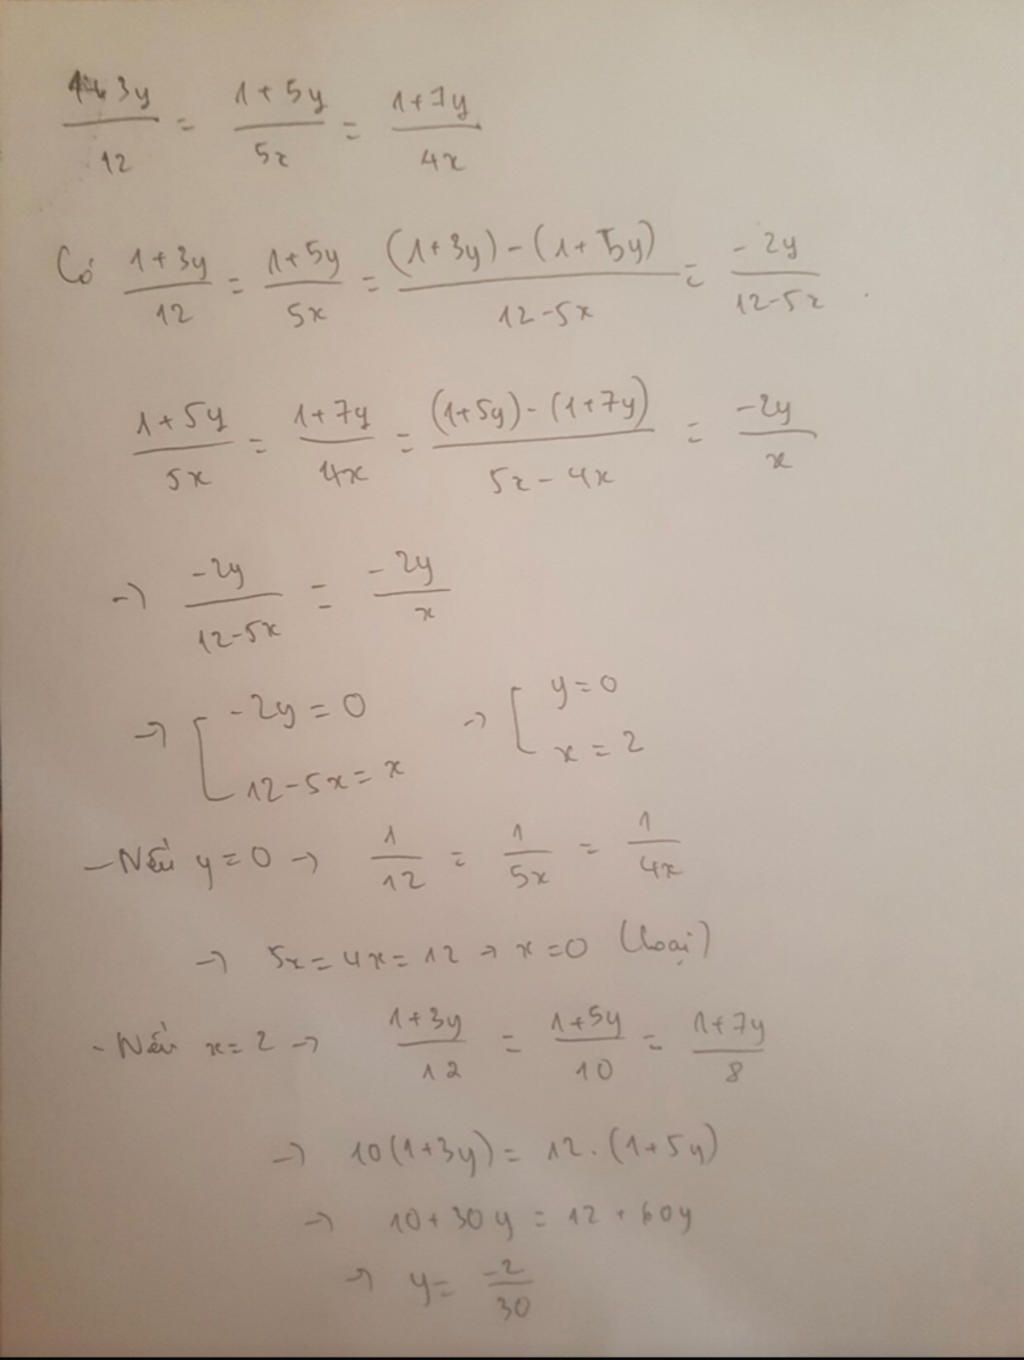 (1+3y)/12 = (1+5y)/5x = (1+7y)/4x
Có (1+3y)/12 = (1+5y)/5x = ((1+3y)-(1+5y))/(12-5x) = -2y/(12-5x).
(1+5y)/5x = (1+7y)/4x = ((1+5y)-(1+7y))/(5x-4x) = -2y/x
→ -2y/(12-5x) = -2y/x
→ [ -2y = 0 → [ y = 0
12-5x = x x = 2
- Nếu y = 0 → 1/12 = 1/5x = 1/4x
→ 5x = 4x = 12 → x = 0 (loại)
- Nếu x = 2 → (1+3y)/12 = (1+5y)/10 = (1+7y)/8
→ 10(1+3y) = 12.(1+5y)
→ 10+30y = 12+60y
→ y = -2/30